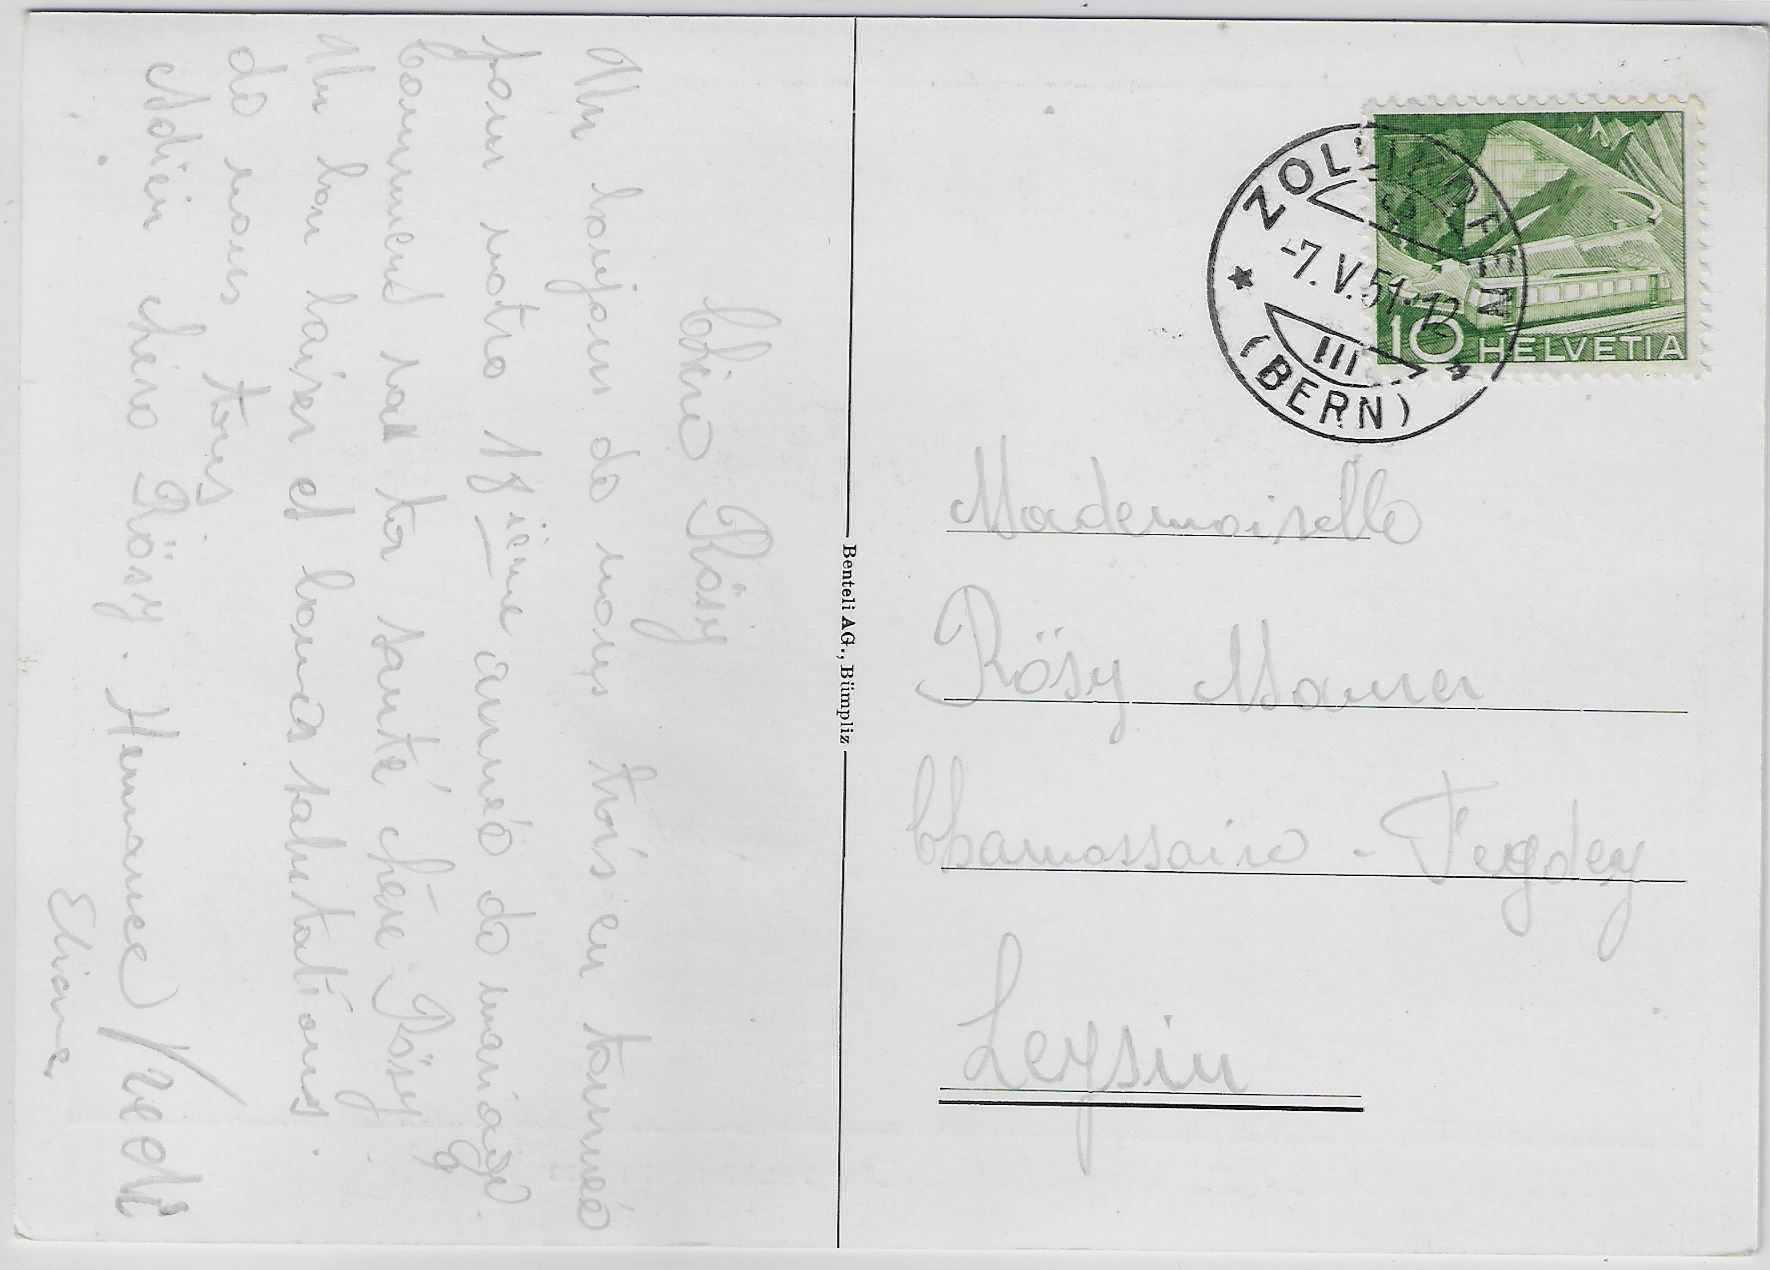 Chère Rösy
Un bonjour de nous trois en tournée
pour notre 17 ième année de mariage.
Comment va ta santé chère Rösy?
Un bon baiser et bonnes salutations.
de nous tous
Adieu chère Rösy. Hermance/
Eliane
Benteli AG., Bümpliz
ZOLLIKOFEN
-7.V.51-12
III
(BERN)
10 HELVETIA
Mademoiselle
Rösy Maurer
Chamossaire - Feydey
Leysin